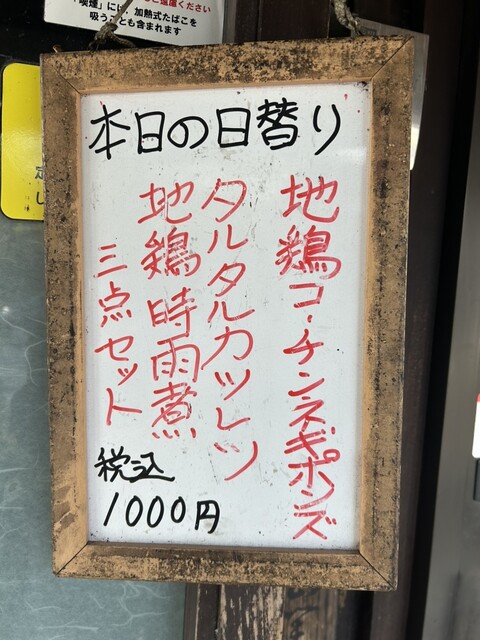 「喫煙」には、加熱式たばこを
吸うことも含まれます
本日の日替り
地鶏コーチンネギポンズ
タルタルカツレツ
地鶏時雨煮
三点セット
税込
1000円